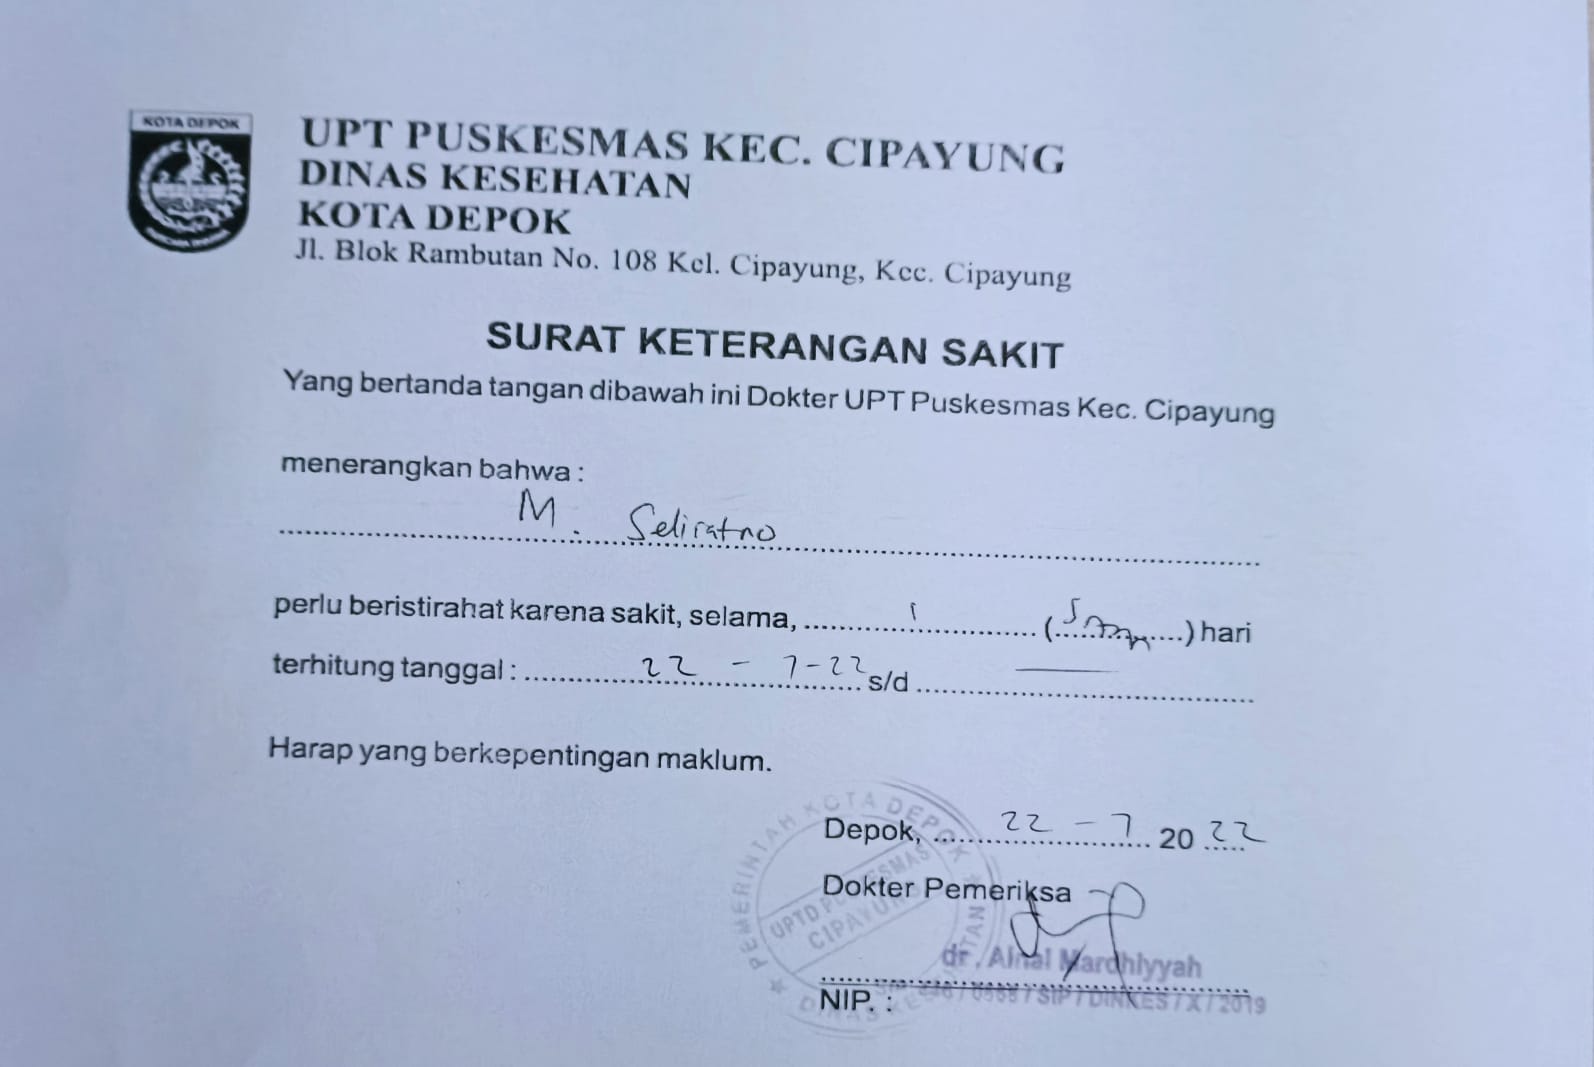 KOTA DEPOK
UPT PUSKESMAS KEC. CIPAYUNG
DINAS KESEHATAN
KOTA DEPOK
Jl. Blok Rambutan No. 108 Kel. Cipayung, Kec. Cipayung
SURAT KETERANGAN SAKIT
Yang bertanda tangan dibawah ini Dokter UPT Puskesmas Kec. Cipayung
menerangkan bahwa :
M. Seliratno
perlu beristirahat karena sakit, selama, 1 (..........) hari
terhitung tanggal : 22 - 7-22 s/d —
Harap yang berkepentingan maklum.
PEMERINTAH KOTA DEPOK
UPTD PUSKESMAS
CIPAYUNG
DINAS KESEHATAN
Depok, 22 - 7 20 22
Dokter Pemeriksa
dr. Ainal Mardhiyyah
NIP. : / SIP / DINKES / X / 2019